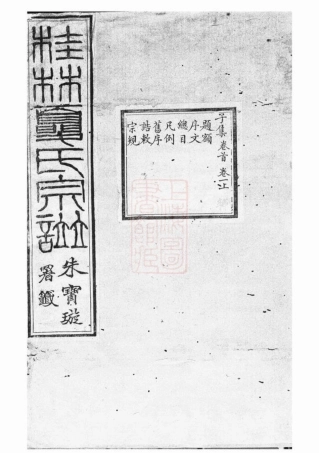 桂林夏氏宗譜
朱寶璇
署籤
子集 卷首 卷一上
題額
序文
總目
凡例
舊序
誥敕
宗規